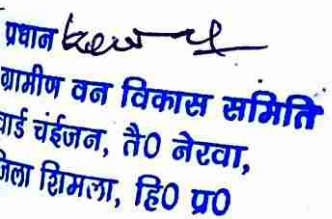 प्रधान
ग्रामीण वन विकास समिति
वार्ड चंईजन, तै0 नेरवा,
जिला शिमला, हि0 प्र0